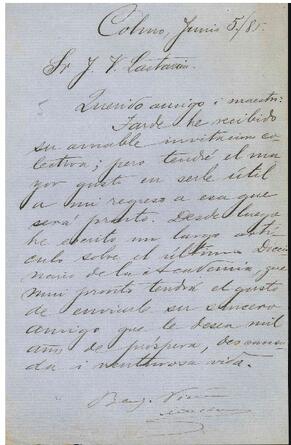 Colmo, Junio 5/85.
Sr J. V. Lastarria
Querido amigo i maestro:
Tarde he recibido
su amable invitacion co-
lectiva; pero tendré el ma
yor gusto en serle útil
a mi regreso a esa que
será pronto. Desde luego
he escrito un largo artí
culo sobre el último Diccio
nario de la Academia, que
mui pronto tendrá el gusto
de enviarle su sincero
amigo que le desea mil
años de próspera, descansa
da i venturosa vida.
Benj. Vicuña